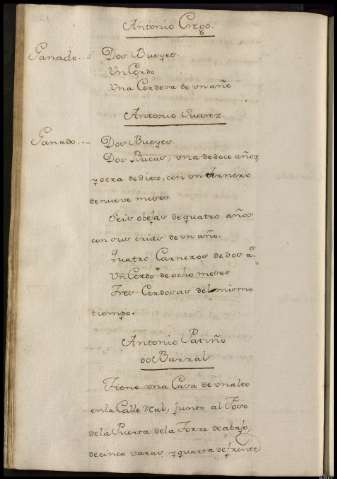 Antonio Crego.
Ganado... Dos Bueyes
Un Cerdo
Una Cerdera de un año
Antonio Suarez
Ganado... Dos Bueyes
Dos Bacas, una de doce años
y otra de diez, con un ternero
de nueve meses
Seis obejas de quatro años
con sus crias de un año.
Quatro Carneros de dos as.
Un Cerdo de ocho meses
Tres Cerdosas del mismo
tiempo.
Antonio Patiño
del Barral
Tiene una Casa de un alto
en la Calle Rl., junto al Foso
de la Puerta de la Torre de abajo,
de cinco varas y quarta de frente